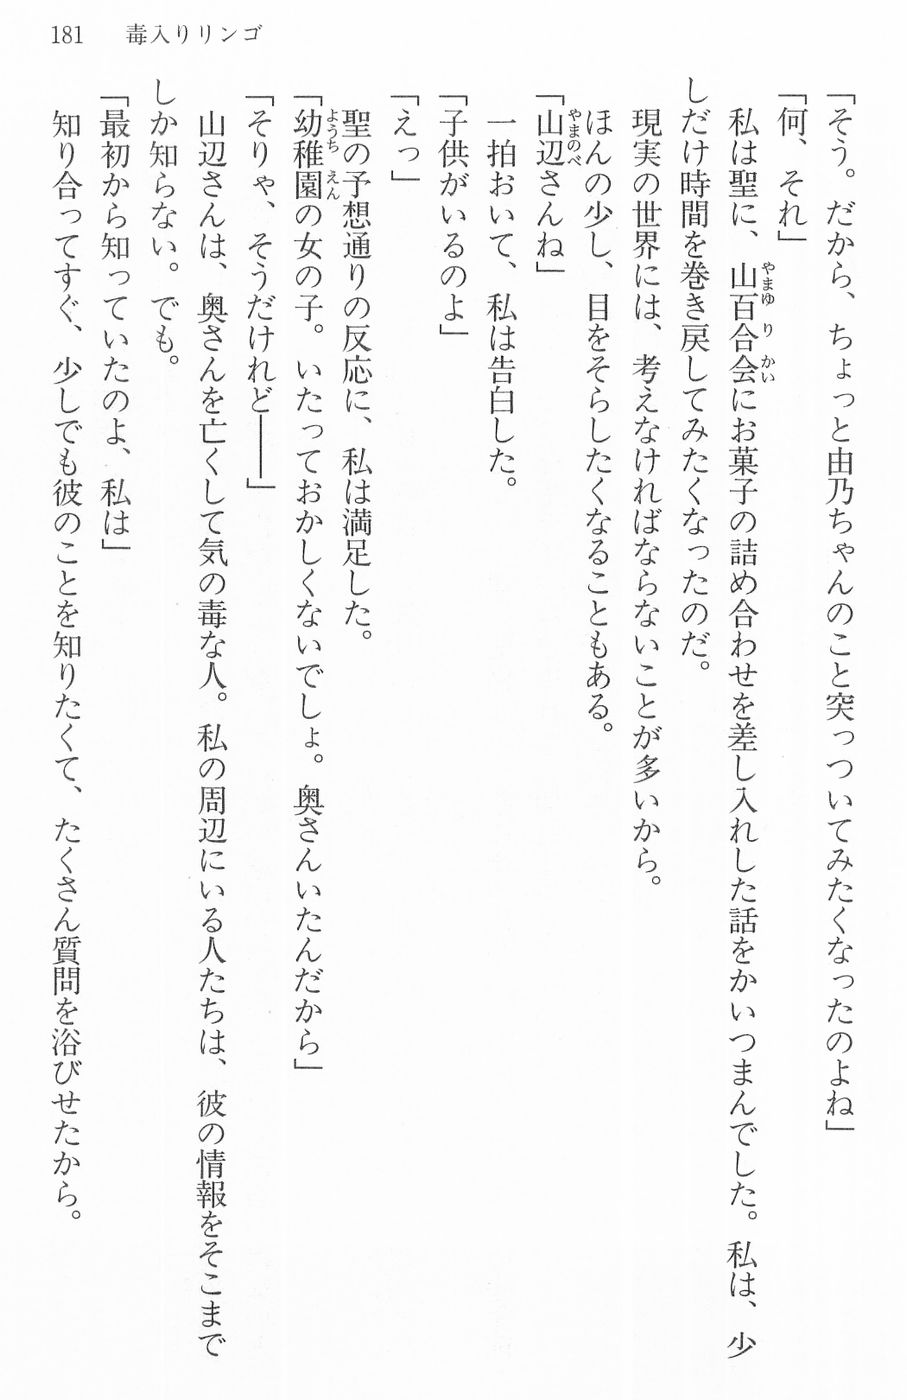 181　毒入りリンゴ
「そう。だから、ちょっと由乃ちゃんのこと突っついてみたくなったのよね」
「何、それ」
　私は聖に、山百合会にお菓子の詰め合わせを差し入れした話をかいつまんでした。私は、少
しだけ時間を巻き戻してみたくなったのだ。
　現実の世界には、考えなければならないことが多いから。
ほんの少し、目をそらしたくなることもある。
「山辺さんね」
　一拍おいて、私は告白した。
「子供がいるのよ」
「えっ」
　聖の予想通りの反応に、私は満足した。
「幼稚園の女の子。いたっておかしくないでしょ。奥さんいたんだから」
「そりゃ、そうだけれど――」
　山辺さんは、奥さんを亡くして気の毒な人。私の周辺にいる人たちは、彼の情報をそこまで
しか知らない。でも。
「最初から知っていたのよ、私は」
　知り合ってすぐ、少しでも彼のことを知りたくて、たくさん質問を浴びせたから。